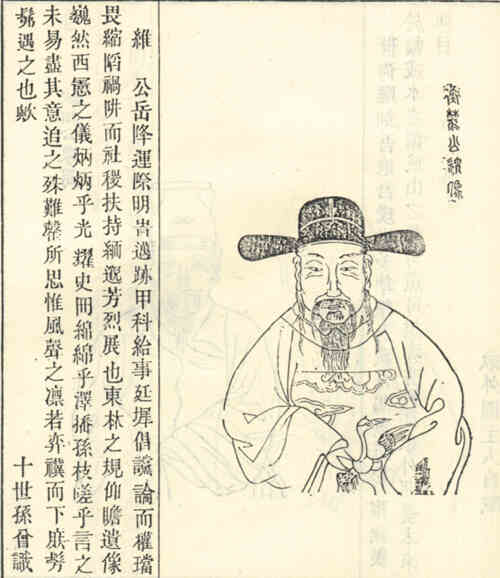 公遺像
維 公岳降運際明峕邁跡甲科給事廷墀倡讜論而權璫
畏縮陷禍阱而社稷扶持緬邈芳烈展也東林之規仰瞻遺像
巍然西之儀炳炳乎光耀史冊綿綿乎澤播孫枝嗟乎言之
未易盡其意追之殊難罄所思惟風聲之凜若弈禩而下庶髣
髴遇之也歟 十世孫曾識